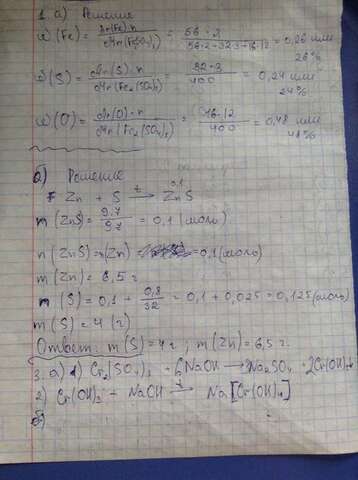 1. а) Решение
ω(Fe) = Ar(Fe)·n / Mr(Fe₂(SO₄)₃) = 56·2 / 56·2+32·3+16·12 = 0,26 или
26%
ω(S) = Ar(S)·n / Mr(Fe₂(SO₄)₃) = 32·3 / 400 = 0,24 или
24%
ω(O) = Ar(O)·n / Mr(Fe₂(SO₄)₃) = 16·12 / 400 = 0,48 или
48%
б) Решение
Zn + S →t ZnS
0,1
m(ZnS) = 9,7 / 97 = 0,1 (моль)
n(ZnS) = n(Zn) = 0,1 (моль)
m(Zn) = 6,5 г
n(S) = 0,1 + 0,8 / 32 = 0,1 + 0,025 = 0,125 (моль)
m(S) = 4 (г)
Ответ: m(S) = 4 г ; m(Zn) = 6,5 г.
3. а) 1) Cr₂(SO₄)₃ + 6NaOH → 3Na₂SO₄ + 2Cr(OH)₃↓
2) Cr(OH)₃ + NaOH →t Na[Cr(OH)₄]
б)